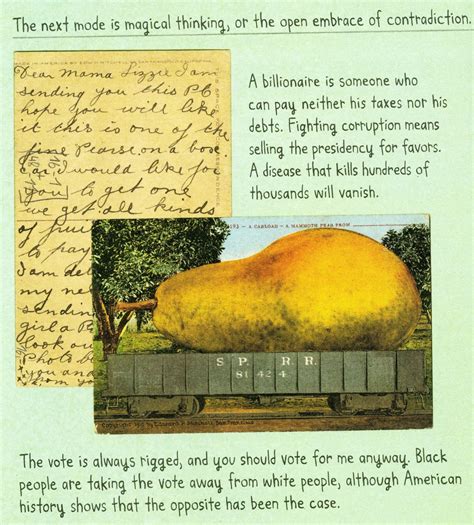 The next mode is magical thinking, or the open embrace of contradiction.
Dear Mama Lizzie I am
sending you this PC
hope you will like
it this is one of the
fine Pearse. on a box
car. I would like for
you to get one
we get all kinds
of
to pay
I am
my
sendin
girl a
look out
Photo
you an
from
A billionaire is someone who
can pay neither his taxes nor his
debts. Fighting corruption means
selling the presidency for favors.
A disease that kills hundreds of
thousands will vanish.
A CARLOAD – A MAMMOTH PEAR FROM
S. P. R. R.
81424
The vote is always rigged, and you should vote for me anyway. Black
people are taking the vote away from white people, although American
history shows that the opposite has been the case.